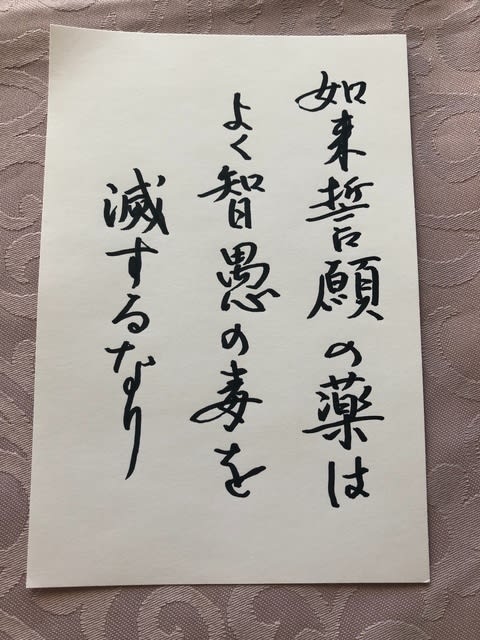 如来誓願の薬は
よく智愚の毒を
滅するなり